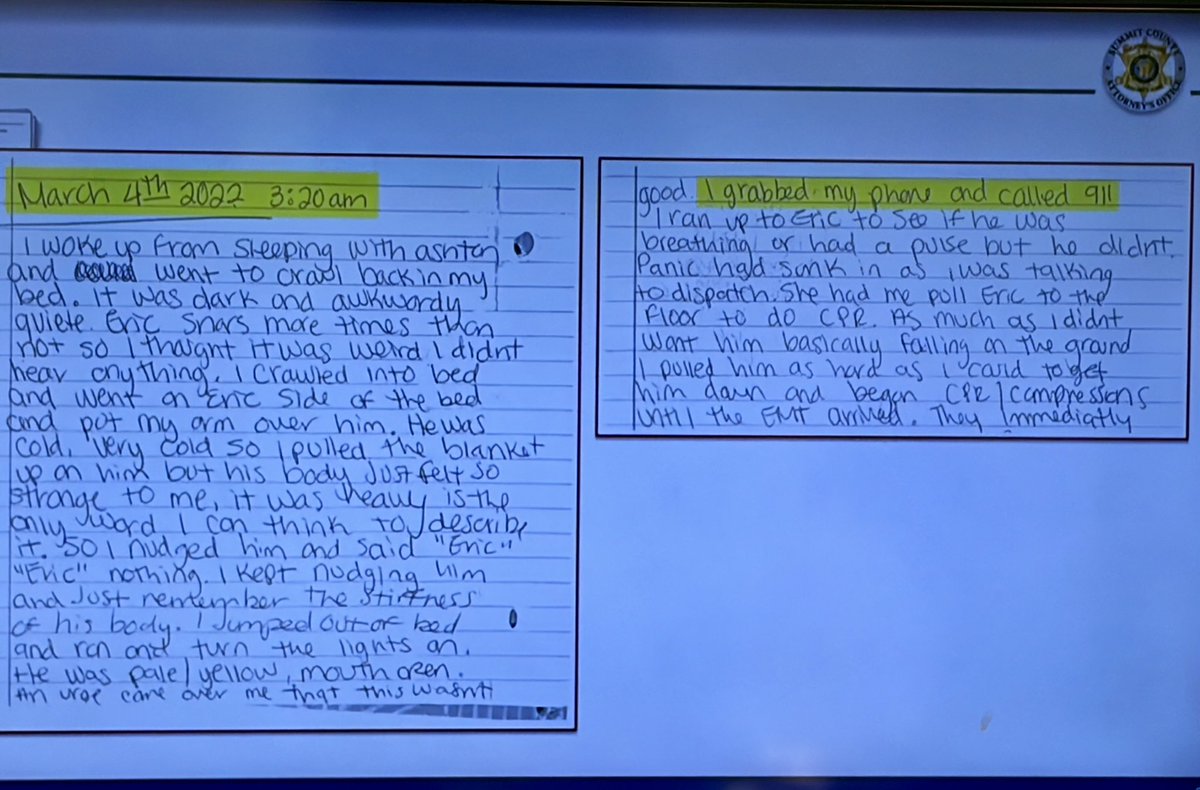 SUMMIT COUNTY
ATTORNEY'S OFFICE
March 4th 2022 3:20am
I woke up from sleeping with ashton
and went to crawl back in my
bed. It was dark and awkwardy
quiete. Eric snars more times than
not so I thaight it was weird I didnt
hear anything. I crawled into bed
and went on Eric side of the bed
and pot my arm over him. He was
cold, very cold so I pulled the blanket
up on him but his body just felt so
strange to me, it was heavy is the
only word I can think to describe
it. So I nudged him and said "Eric"
"Eric" nothing. I kept nudging him
and just remtember the stiffness
of his body. I jumped out of bed
and ran and turn the lights on.
He was pale/yellow, mouth open.
An urge came over me that this wasnt
good. I grabbed my phone and called 911
I ran up to Eric to see if he was
breathing or had a pulse but he didnt.
Panic had sank in as I was talking
to dispatch. She had me pull Eric to the
floor to do CPR. As much as I didnt
want him basically falling on the ground
I pulled him as hard as I could to get
him down and began CPR/compressions
until the EMT arrived. They immediatly